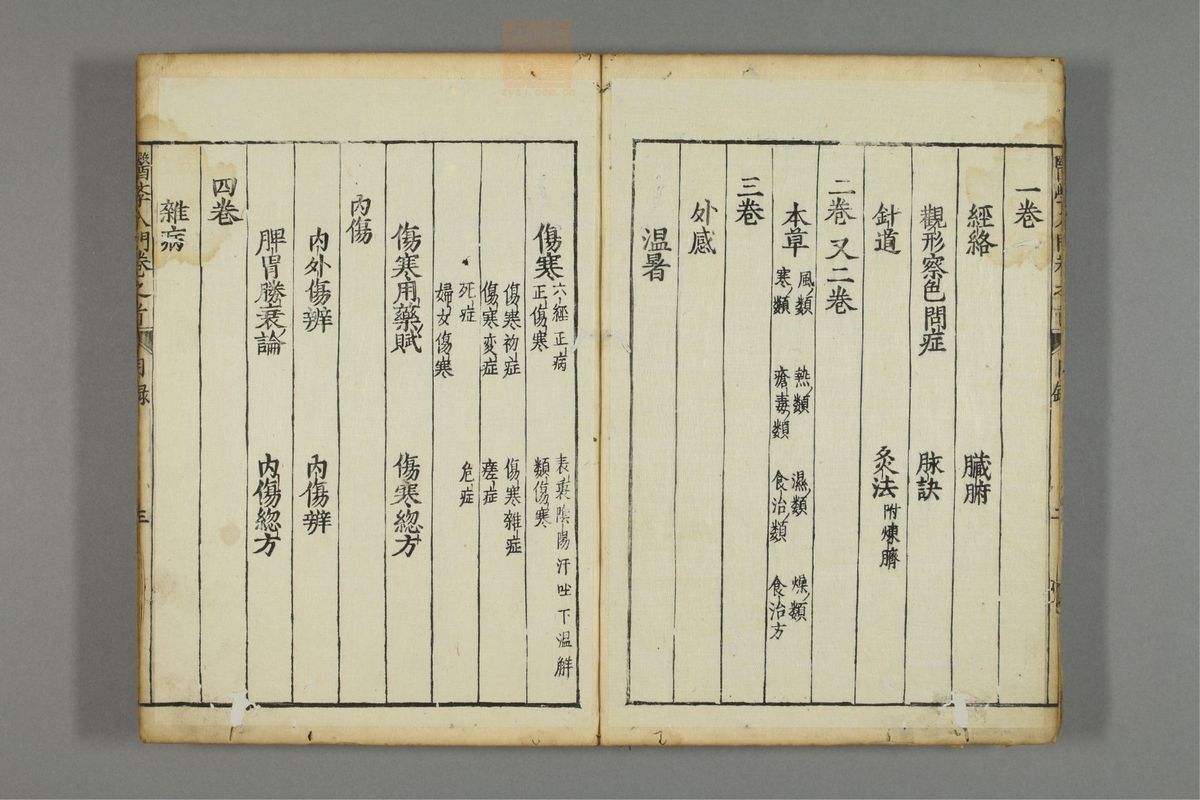 一巻
經絡 臓腑
觀形察色問症 脉訣
針道 灸法附煉臍
二巻 又二巻
本草 風類 熱類 濕類 燥類
寒類 瘡毒類 食治類 食治方
三巻
外感
温暑
傷寒 六經正病 表裏陰陽汗吐下温解
正傷寒 類傷寒
傷寒初症 傷寒雜症
傷寒変症 瘥症
死症 危症
婦女傷寒
傷寒用藥賦 傷寒緫方
內傷
內外傷辨 內傷辨
脾胃勝衰論 內傷緫方
四巻
雜病
醫孝入門巻之首 目録 三